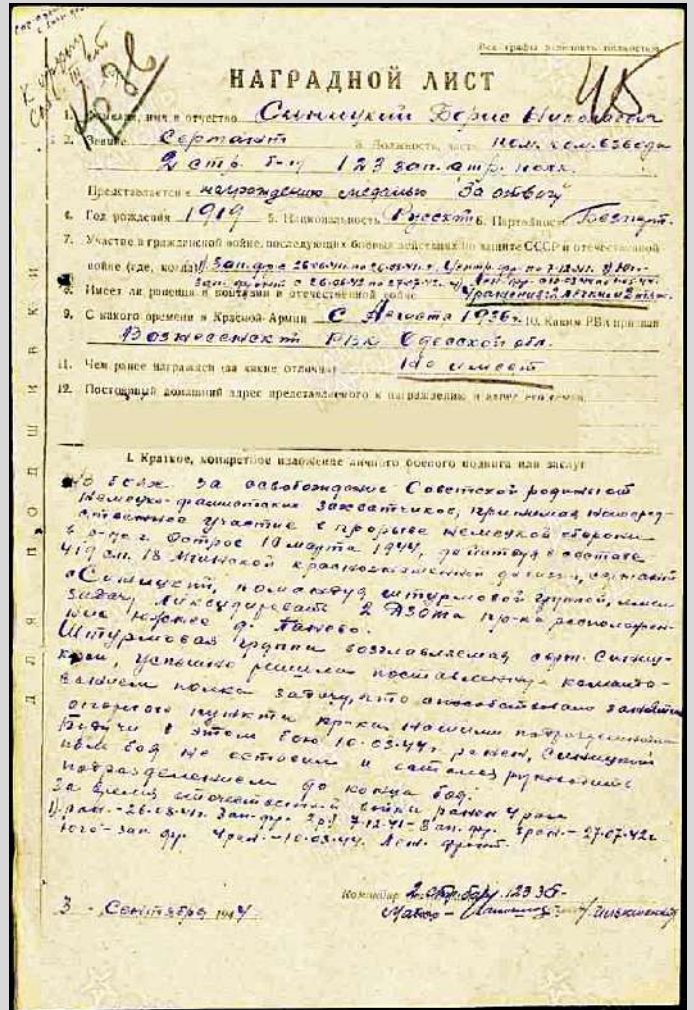 Все графы заполнять полностью
45
К ордену
Слав. III ст
Кр Зв
НАГРАДНОЙ ЛИСТ
1. Фамилия, имя и отчество Синицкий Борис Николаевич
2. Звание Сержант 3. Должность, часть пом. ком. взвода
2 стр. б-н 123 зап. стр. полк.
Представляется к награждению медалью "За отвагу"
4. Год рождения 1919 5. Национальность Русский 6. Партийность Беспарт.
7. Участие в гражданской войне, последующих боевых действиях по защите СССР и отечественной
войне (где, когда) 1) Зап. фр с 26-06-41 по 26-08-41 г. Центр. фр. по 7-12-41. 3) Юго-
Зап. фронт с 26-06-42 по 27-07-42 г.
8. Имеет ли ранения и контузии в отечественной войне 4 ранения 2 легких 2 тяж.
9. С какого времени в Красной Армии С Августа 1936 г. 10. Каким РВК призван
Вознесенским РВК Одесской обл.
11. Чем ранее награжден (за какие отличия) Не имеет
12. Постоянный домашний адрес представляемого к награждению и адрес его семьи
ДЛЯ ПОДШИВКИ
I. Краткое, конкретное изложение личного боевого подвига или заслуг
Во боях за освобождение Советской родины от
Немецко-фашистских захватчиков, принимая непосред-
ственное участие в прорыве немецкой обороны
в р-не г. Остров 10 марта 1944, действуя в составе
419 сп. 18 Мгинской краснознаменной дивизии, сержант
Синицкий, командуя штурмовой группой, имел
задачу ликвидировать 2 ДЗОТа пр-ка расположен-
ние южнее д. Паново.
Штурмовая группа возглавляемая серж. Синиц-
ким, успешно решила поставленную командо-
ванием полка задачу, что способствовало занятию
опорного пункта пр-ка нашими подразделениями
Будучи в этом бою 10-03-44 г. ранен, Синицкий
поле боя не оставил и остался руководить
подразделением до конца боя.
За время отечественной войны ранен 4 раза
1) ран. - 26-08-41 г. Зап. фр. 2 р. 7-12-41 - Зап. фр. 3 ран. - 27-07-42 г.
Юго-Зап. фр. 4 ран. - 10-03-44. Лен. фронт.
Командир 2 стр. бат. 123 ЗСП-
3 Сентября 1944 Майор -